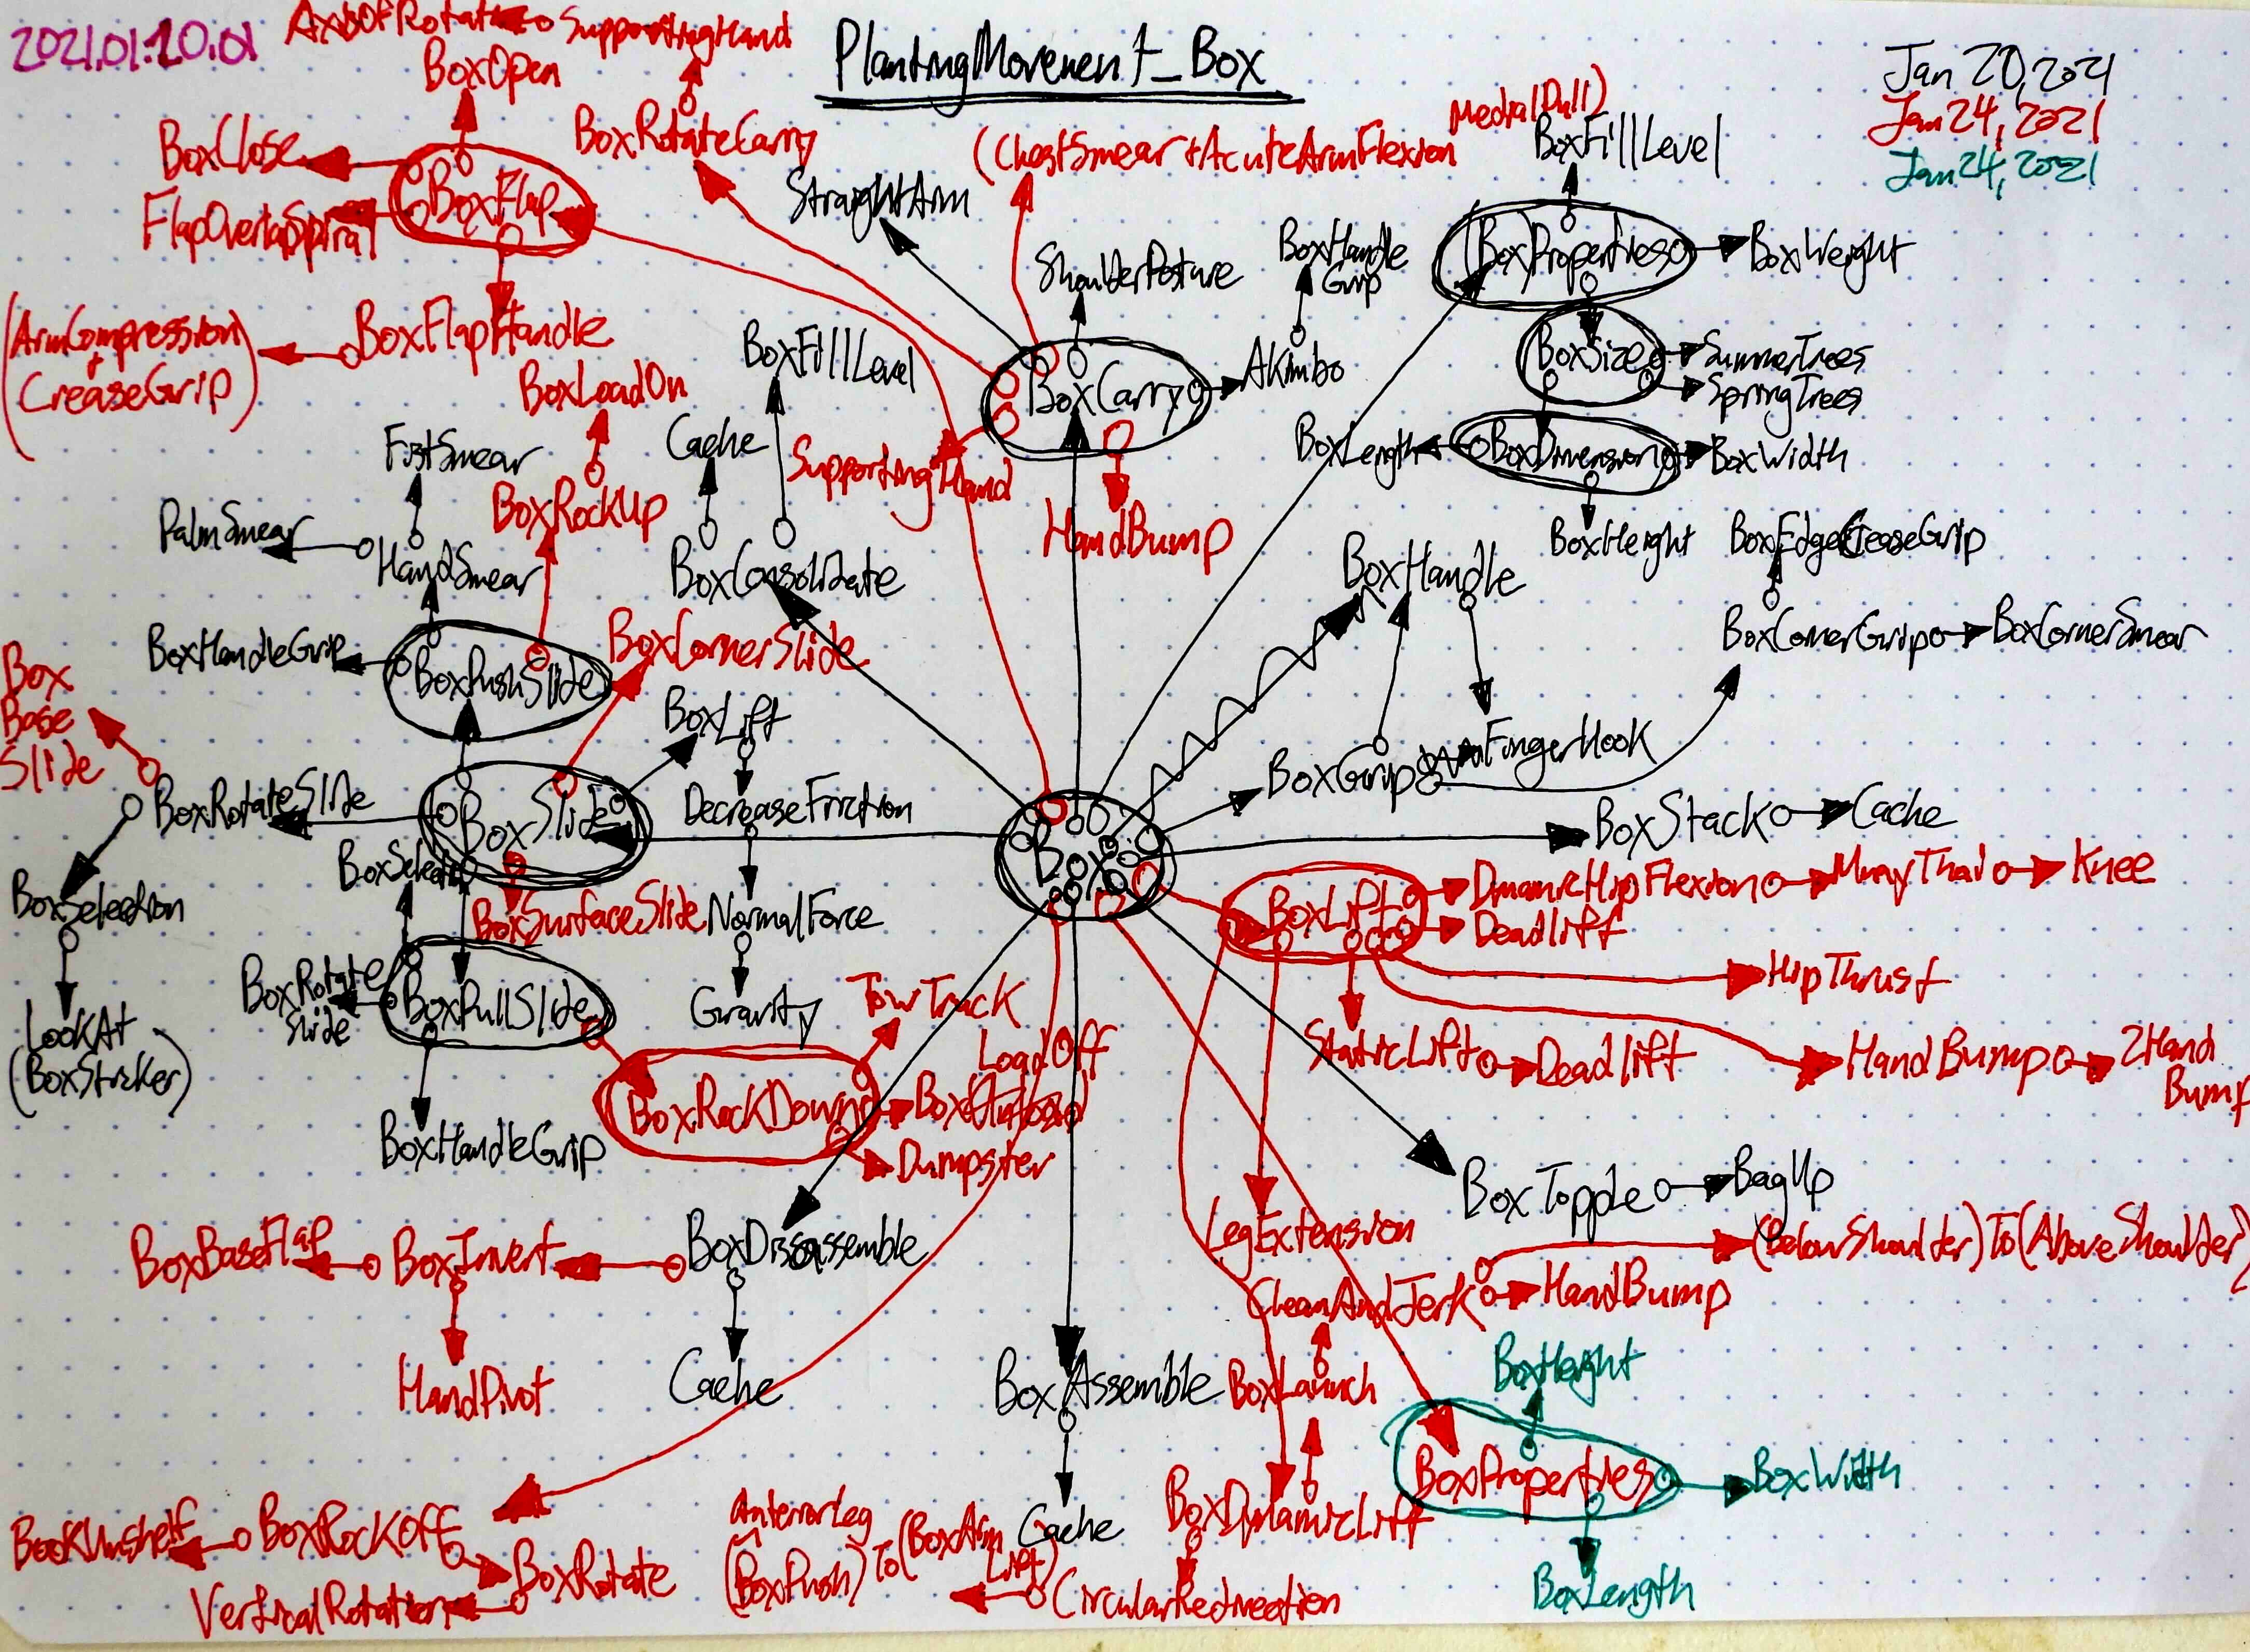 2021.01.20.01
AxisOfRotation
SupportingHand
PlantingMovement_Box
Jan 20, 2021
Jan 24, 2021
Jan 24, 2021
BoxOpen
BoxClose
BoxFlap
FlapOverlapSpiral
BoxRotateCarry
StraightArm
(ChestSmear + AcuteArmFlexion
Medial Pull)
BoxFillLevel
BoxProperties
BoxWeight
ShoulderPosture
BoxHandle
Grip
(ArmCompression)
+
CreaseGrip)
BoxFlapHandle
BoxFillLevel
BoxCarry
Akimbo
BoxSize
SummerTrees
SpringTrees
BoxLoadOn
FistSmear
Cache
SupportingHand
HandBump
BoxLength
BoxDimension
BoxWidth
BoxHeight
PalmSmear
HandSmear
BoxRockUp
BoxConsolidate
BoxHandle
BoxEdgeCreaseGrip
BoxCornerGrip
BoxCornerSmear
BoxHandleGrip
BoxPushSlide
BoxCornerSlide
Box
Base
Slide
BoxLift
BoxGrip
FingerHook
BoxRotateSlide
BoxSlide
DecreaseFriction
Box
BoxStack
Cache
BoxSelection
BoxSelection
BoxSurfaceSlide
NormalForce
BoxLift
DynamicHipFlexion
MuayThai
Knee
Deadlift
LookAt
(BoxSticker)
BoxRotate
Slide
BoxPullSlide
Gravity
TowTrack
HipThrust
LoadOff
StaticLift
Deadlift
HandBump
2Hand
Bump
BoxRockDown
Box
Dumpster
BoxHandleGrip
BoxTopple
BagUp
BoxBaseFlap
BoxInvert
BoxDisassemble
LegExtension
(BelowShoulder)To(AboveShoulder)
CleanAndJerk
HandBump
HandPivot
Cache
BoxAssemble
BoxLaunch
BoxHeight
BoxProperties
BoxWidth
BookUnshelf
BoxRockOff
BoxRotate
VerticalRotation
AnteriorLeg
(BoxPush)To(BoxArm
Lift)
Cache
BoxDynamicLift
CircularRedirection
BoxLength